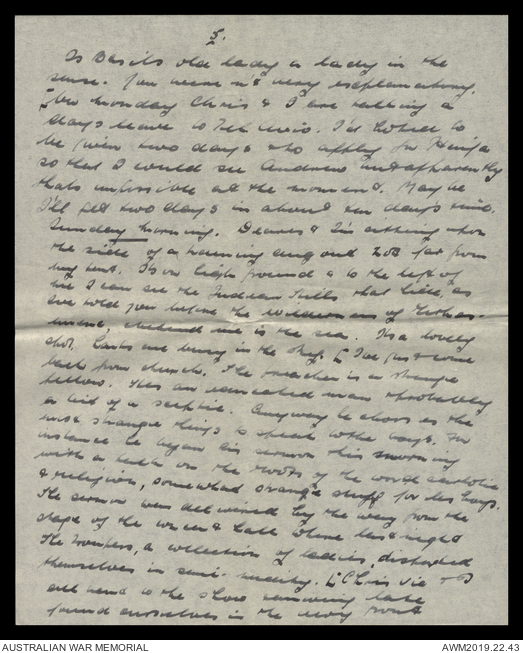 5.
Is Basils old lady a lady in the
sense. You were n't very explanatory.
[On Monday Chris & I are taking a
days leave to Tel Aviv. I'd hoped to
be given two days & to apply for Haifa
so that I would see Andrew but apparently
thats impossible at the moment. Maybe
I'll get two days in about ten days time.
Sunday Morning. Dearest I'm sitting upon
the side of a running ground not far from
my tent. Its on high ground & to the left of
me I can see the Judean Hills that hide, as
I've told you before the wilderness of Gethse-
mane, behind me is the sea. Its a lovely
spot. Larks are busy in the sky. [I've just come
back from church. The preacher is a strange
fellow. Hes an educated man & probably
a bit of a sceptic. Anyway he chooses the
most strange things to speak to the boys. For
instance he began his sermon this morning
with a talk on the roots of the word catholic
& religion, somewhat strange stuff for les boys.
The sermon was delivered by the way from the
stage of the concert hall where last night
The Troupers, a collection of ladies, disported
themselves in semi-nudity. [Chris Vic & I
all went to the show arriving late
found ourselves in the very front
AUSTRALIAN WAR MEMORIAL
AWM2019.22.43